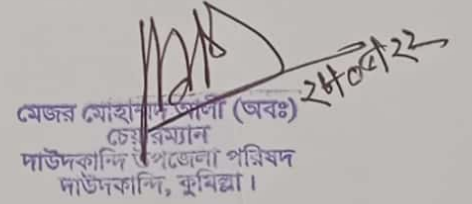 মেজর মোহাম্মদ আলী (অবঃ)
চেয়ারম্যান
দাউদকান্দি উপজেলা পরিষদ
দাউদকান্দি, কুমিল্লা।